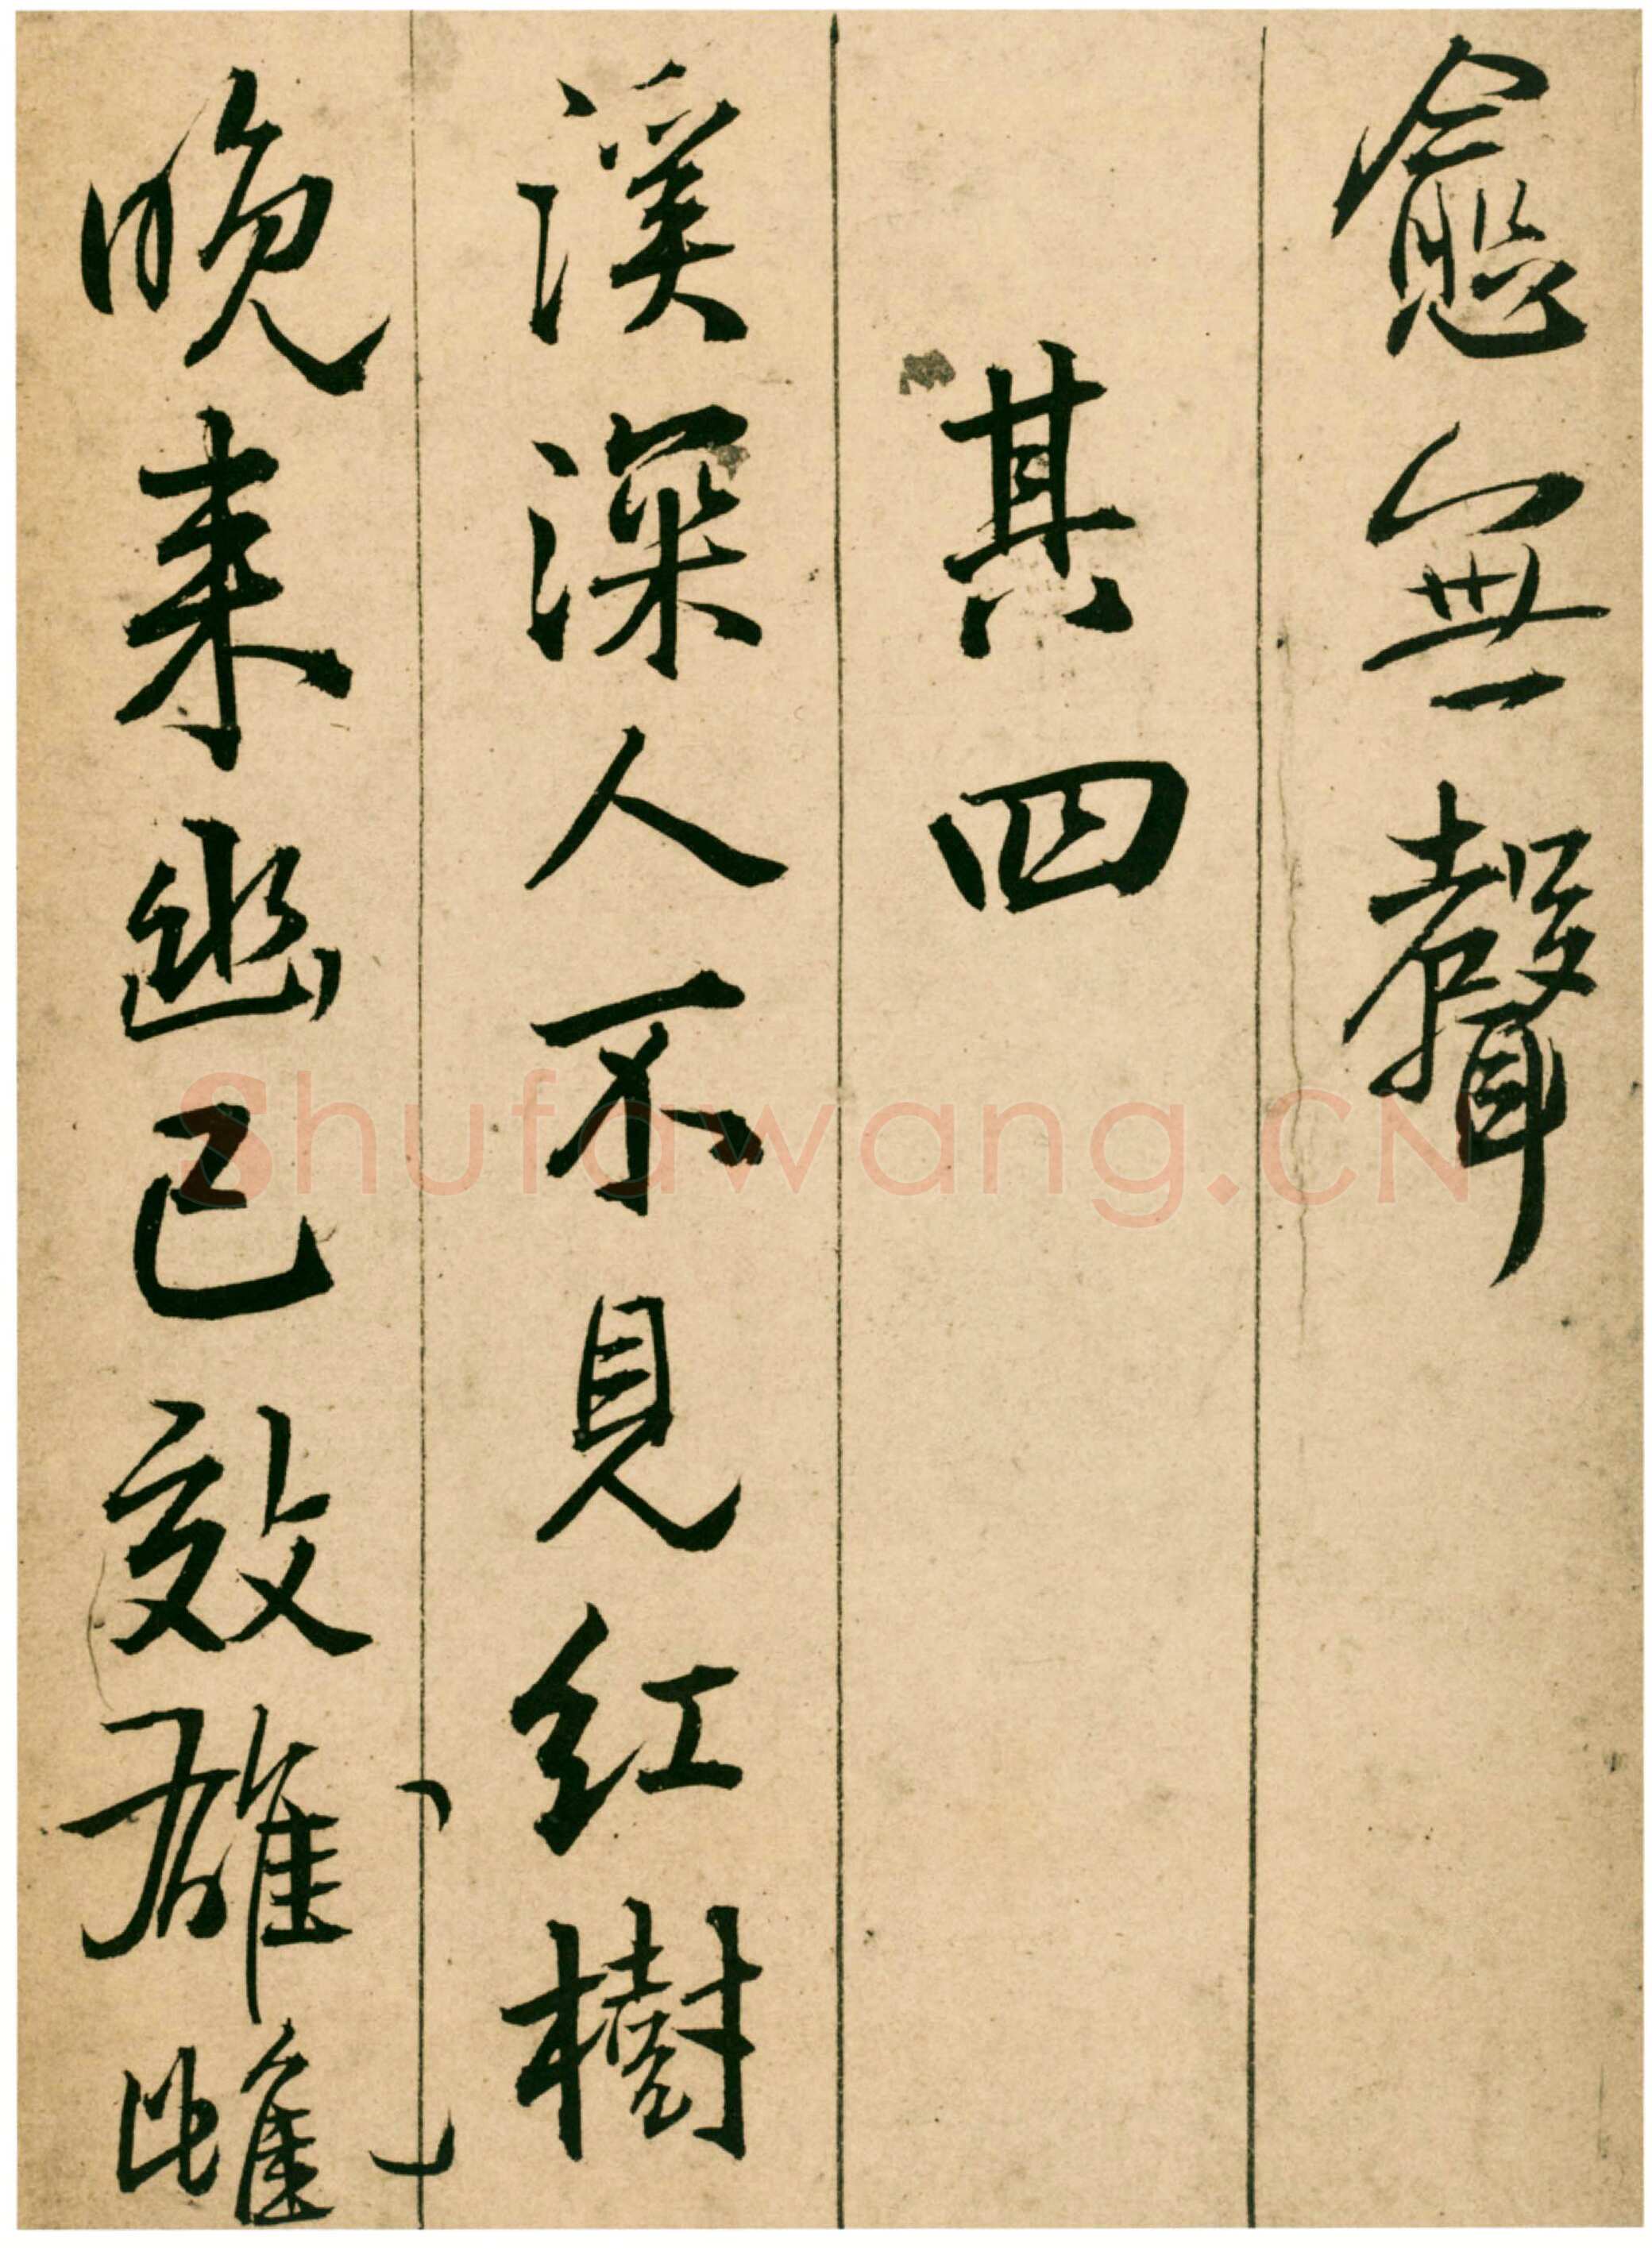 愈無聲
其四
溪深人不見紅樹
晚来幽已效雄雌
Shufawang.CN